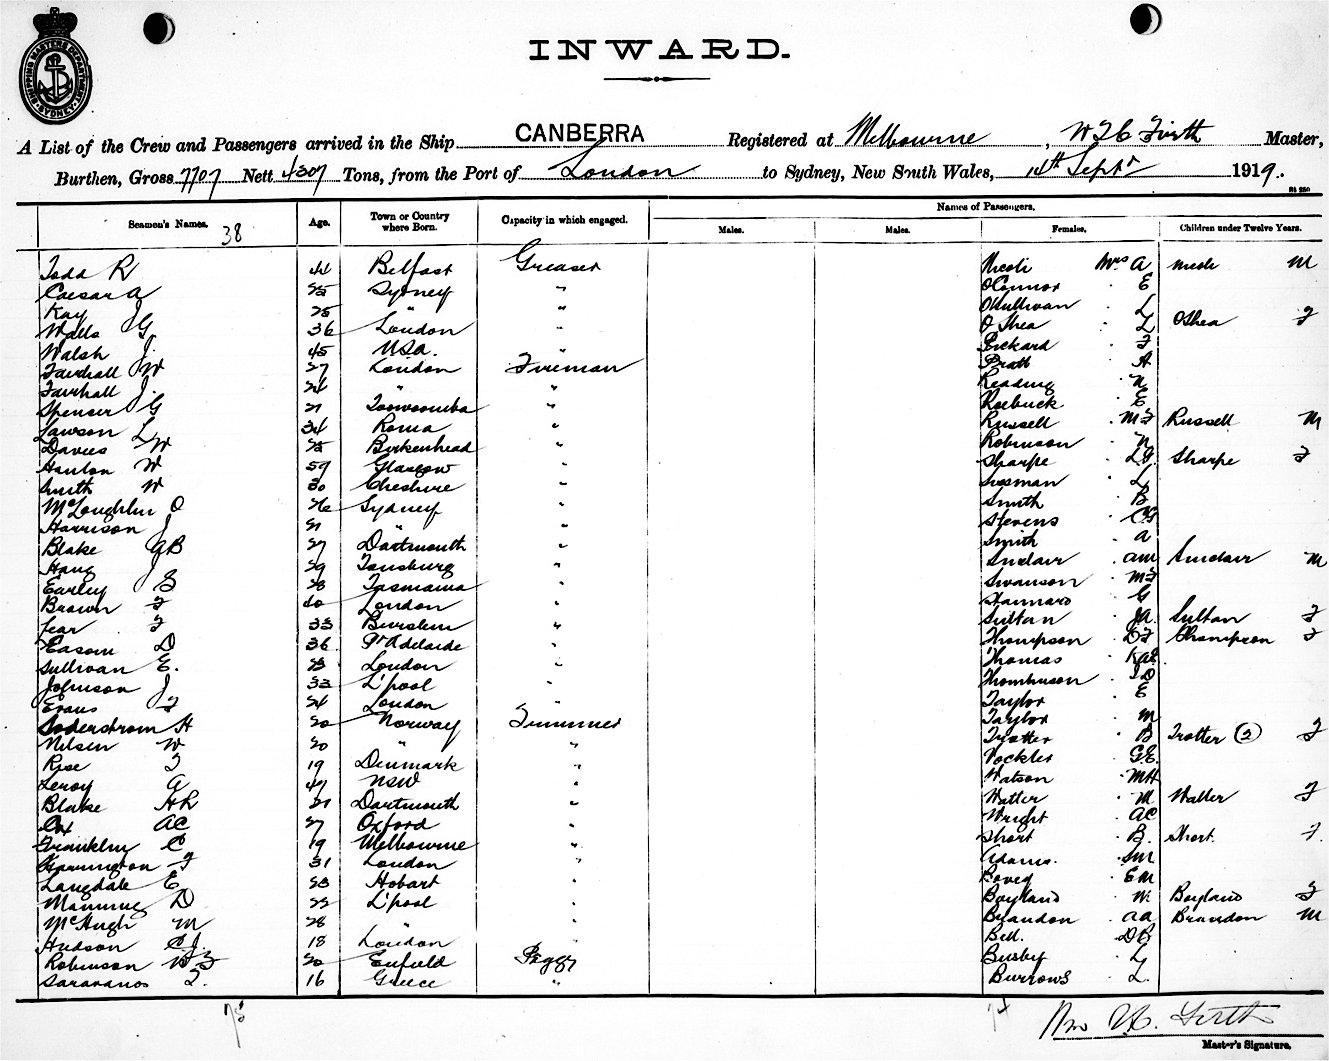 SHIPPING MASTERS DEPARTMENT SYDNEY
INWARD.
A List of the Crew and Passengers arrived in the Ship CANBERRA Registered at Melbourne, Firth Master,
Burthen, Gross 7707 Nett 4307 Tons, from the Port of London to Sydney, New South Wales, 14th Septr 1919.
Names of Passengers.
Seamen's Names. Age. Town or Country where Born. Capacity in which engaged. Males. Males. Females. Children under Twelve Years.
38
Todd R 44 Belfast Greaser Mrs A M
Caesar A 25 Sydney " OConnor E
Kay J 25 " " OSullivan L
Wells G 36 London " O Shea L OShea F
Walsh J. 45 USA. " Pickard F
Fairhall W 27 London Fireman Pratt A
Fairhall J. 24 " " Reading N
Spencer G 21 Toowoomba " Roebuck E
Lawson L 34 Roma " Russell M F Russell M
Davies W 25 Birkenhead " Robinson N
W 59 Glasgow " Sharpe L G Sharpe F
Smith W 30 Cheshire " L
McLoughlin O 26 Sydney " Smith B
Harrison J 21 " " Stevens C G
Blake G B 27 Dartmouth " Smith A
J 29 " Sinclair A M Sinclair M
Earley S 28 Tasmania " Swanson M F
Brown F 40 London " G
Fear F 33 Burslem " Sultan J A. Sultan F
Eason D 36 Pt Adelaide " Thompson D F Thompson F
Sullivan E. 23 London " Thomas
Johnson J 33 L'pool " J D
Evans F 24 London " Taylor E
Soderstrom H 20 Norway Trimmer Taylor M
Nilsen W 20 " " Trotter B Trotter (2) F
Rise F 19 Denmark " Vockler G E.
Leroy A 47 NSW " Watson M H
Blake H R 21 Dartmouth " Walter M Walter F
Cox A C 27 Oxford " Wright A C
Franklin C 19 Melbourne " Short B. Short. F.
F 31 London " Adams. M
Langdale E 23 Hobart " E M
Manning D 22 L'pool " Boyland W. Boyland F
McHugh M 28 " " Brandon A A Brandon M
Hudson C J. 18 London " Bell. D B
Robinson F 20 Enfield Peggy Busby L
Saravanos 16 Greece " Burrows L.
Firth
Master's Signature.